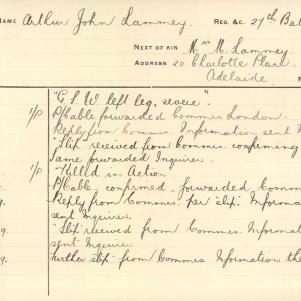 NAME Arthur John Lammey. REG. &C. 27th Bat
NEXT OF KIN Mrs M. Lammey.
ADDRESS 20 Charlotte Place.
Adelaide
"G.S.W. left leg, severe".
1/p P/Cable forwarded Commrs London.
Reply from Commrs. Information sent
"Slip" received from Commrs. confirming
Same forwarded Inquirer.
1/p "Killed in Action"
P/Cable confirmed forwarded Comm
Reply from Commrs. per "slip" Informa
sent Inquirer.
"Slip" received from Commrs. Informat
sent Inquirer
further "slip" from Commrs Information the